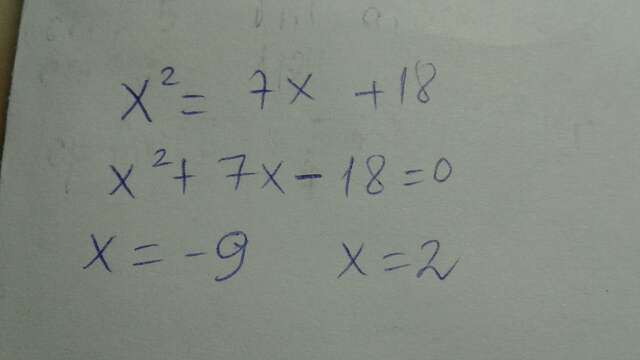 x² = 7x + 18
x² + 7x - 18 = 0
x = -9 x = 2